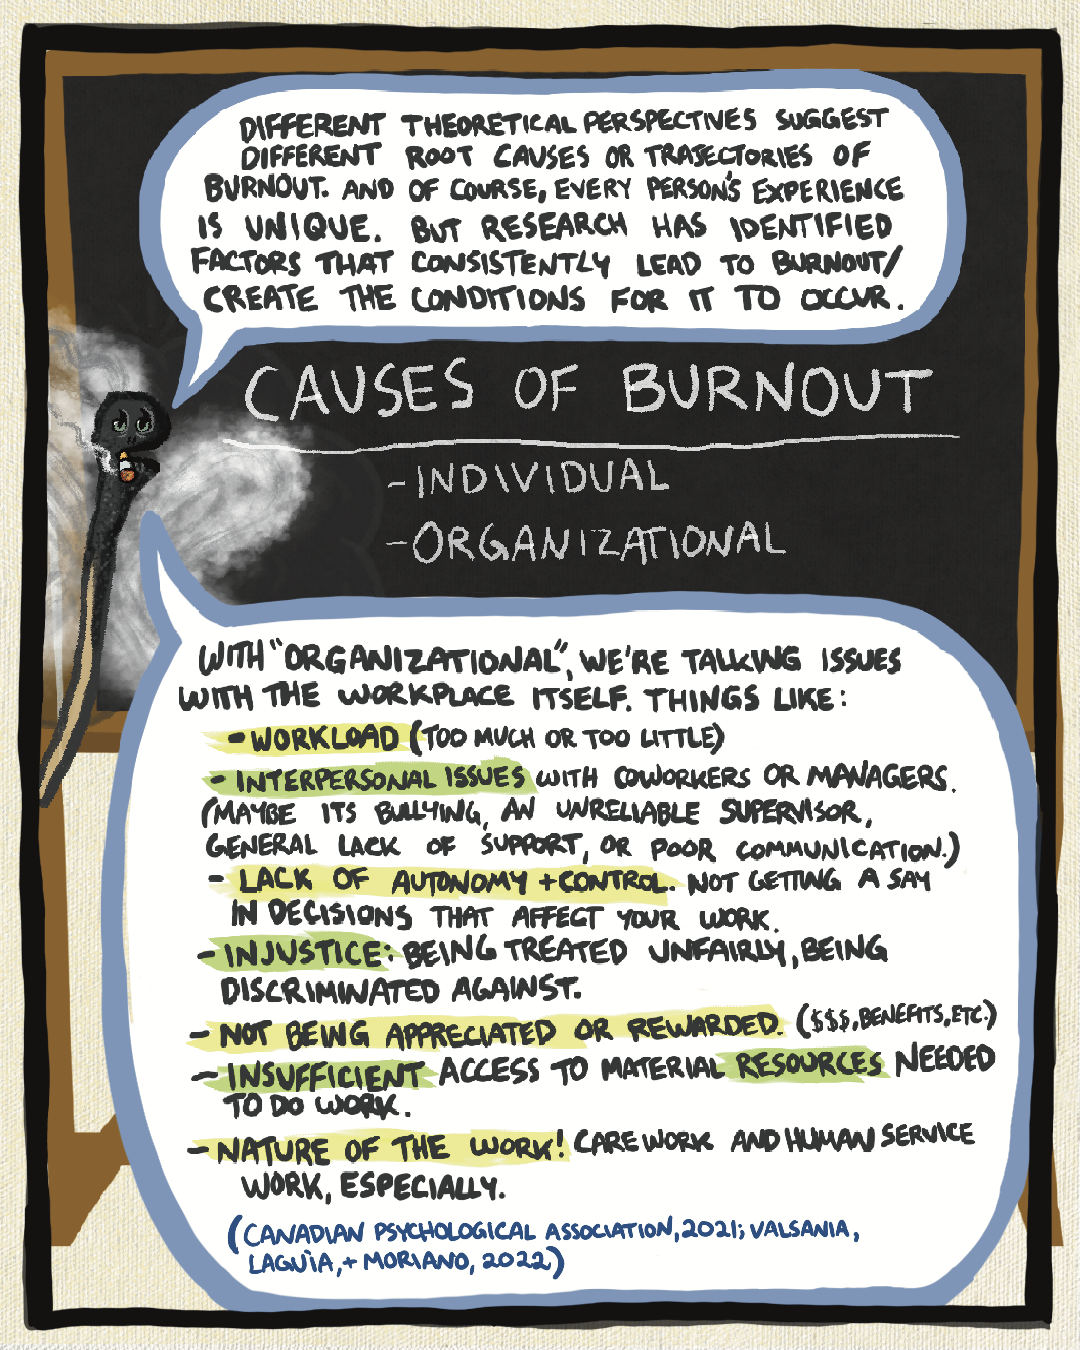 DIFFERENT THEORETICAL PERSPECTIVES SUGGEST
DIFFERENT ROOT CAUSES OR TRAJECTORIES OF
BURNOUT. AND OF COURSE, EVERY PERSON'S EXPERIENCE
IS UNIQUE. BUT RESEARCH HAS IDENTIFIED
FACTORS THAT CONSISTENTLY LEAD TO BURNOUT/
CREATE THE CONDITIONS FOR IT TO OCCUR.
CAUSES OF BURNOUT
- INDIVIDUAL
- ORGANIZATIONAL
WITH "ORGANIZATIONAL", WE'RE TALKING ISSUES
WITH THE WORKPLACE ITSELF. THINGS LIKE:
- WORKLOAD (TOO MUCH OR TOO LITTLE)
- INTERPERSONAL ISSUES WITH COWORKERS OR MANAGERS.
(MAYBE ITS BULLYING, AN UNRELIABLE SUPERVISOR,
GENERAL LACK OF SUPPORT, OR POOR COMMUNICATION.)
- LACK OF AUTONOMY + CONTROL. NOT GETTING A SAY
IN DECISIONS THAT AFFECT YOUR WORK.
- INJUSTICE: BEING TREATED UNFAIRLY, BEING
DISCRIMINATED AGAINST.
- NOT BEING APPRECIATED OR REWARDED. ($$$, BENEFITS, ETC.)
- INSUFFICIENT ACCESS TO MATERIAL RESOURCES NEEDED
TO DO WORK.
- NATURE OF THE WORK! CARE WORK AND HUMAN SERVICE
WORK, ESPECIALLY.
(CANADIAN PSYCHOLOGICAL ASSOCIATION, 2021; VALSANIA,
LAGUÍA, + MORIANO, 2022)